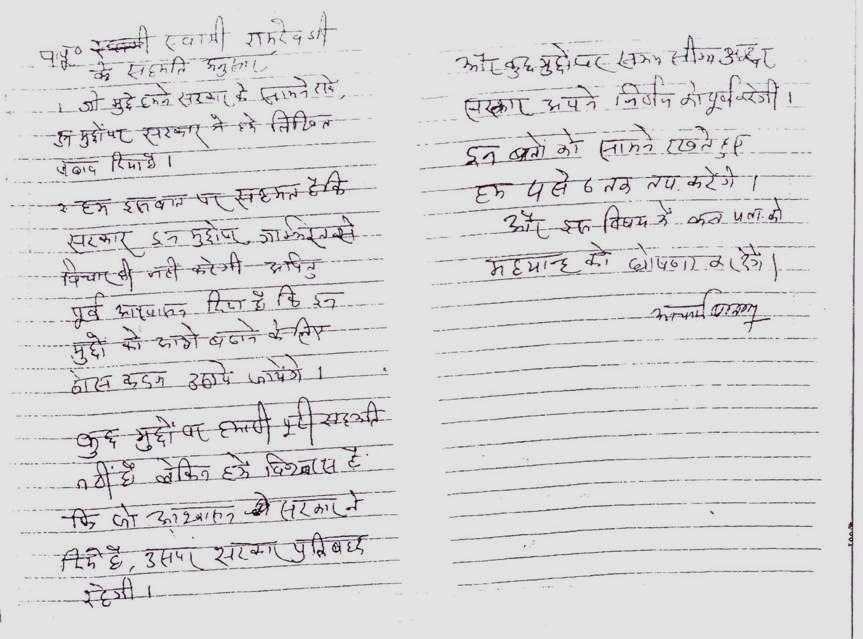 प०पू० स्वामी रामदेवजी
के सहमति अनुसार
1. जो मुद्दे हमने सरकार के सामने रखे,
उन मुद्दोंपर सरकार ने हमे लिखित
जवाब दिया है।
2 हम इस बात पर सहमत है कि
सरकार इन मुद्दोंपर से
विचार ही नही करेगी अपितु
पूर्व आश्वासन दिया है कि इन
मुद्दो को आगे बढाने के लिए
ठोस कदम उठाये जायेंगे।
कुछ मुद्दों पर हमारी पूरी सहमती
नहीं है लेकिन हमे विश्वास है
कि जो आश्वासन सरकार ने
दिये है, उसपर सरकार प्रतिबध्द
रहेगी।
और कुछ मुद्दोंपर समय सीमा अन्दर
सरकार अपने निर्णय को पूर्ण करेगी।
इन बातो को सामने रखते हुए
हम 4 से 6 तक तप करेंगे।
और इस विषय में कल को
मध्यान्ह को घोषणा कर देंगे।
आचार्य बालकृष्ण